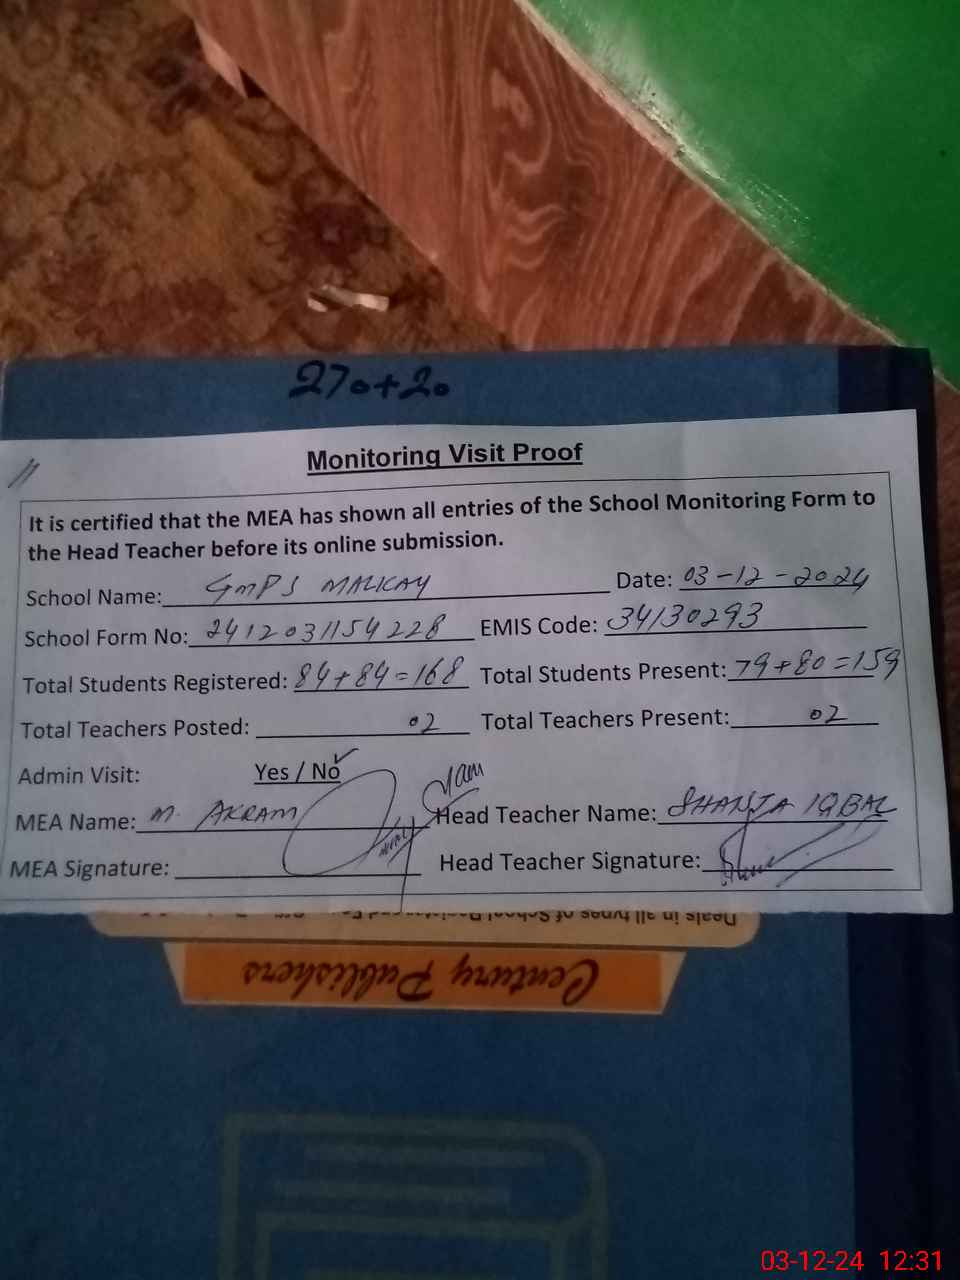 270+20
Monitoring Visit Proof
It is certified that the MEA has shown all entries of the School Monitoring Form to
the Head Teacher before its online submission.
School Name: GMPS MALKAY Date: 03-12-2024
School Form No: 2412031154228 EMIS Code: 34130293
Total Students Registered: 84+84=168 Total Students Present: 79+80=159
Total Teachers Posted: 02 Total Teachers Present: 02
Admin Visit: Yes / No
MEA Name: M. AKRAM Head Teacher Name: IQBAL
MEA Signature: Head Teacher Signature:
Deals in all types of School
Century Publishers
03-12-24 12:31